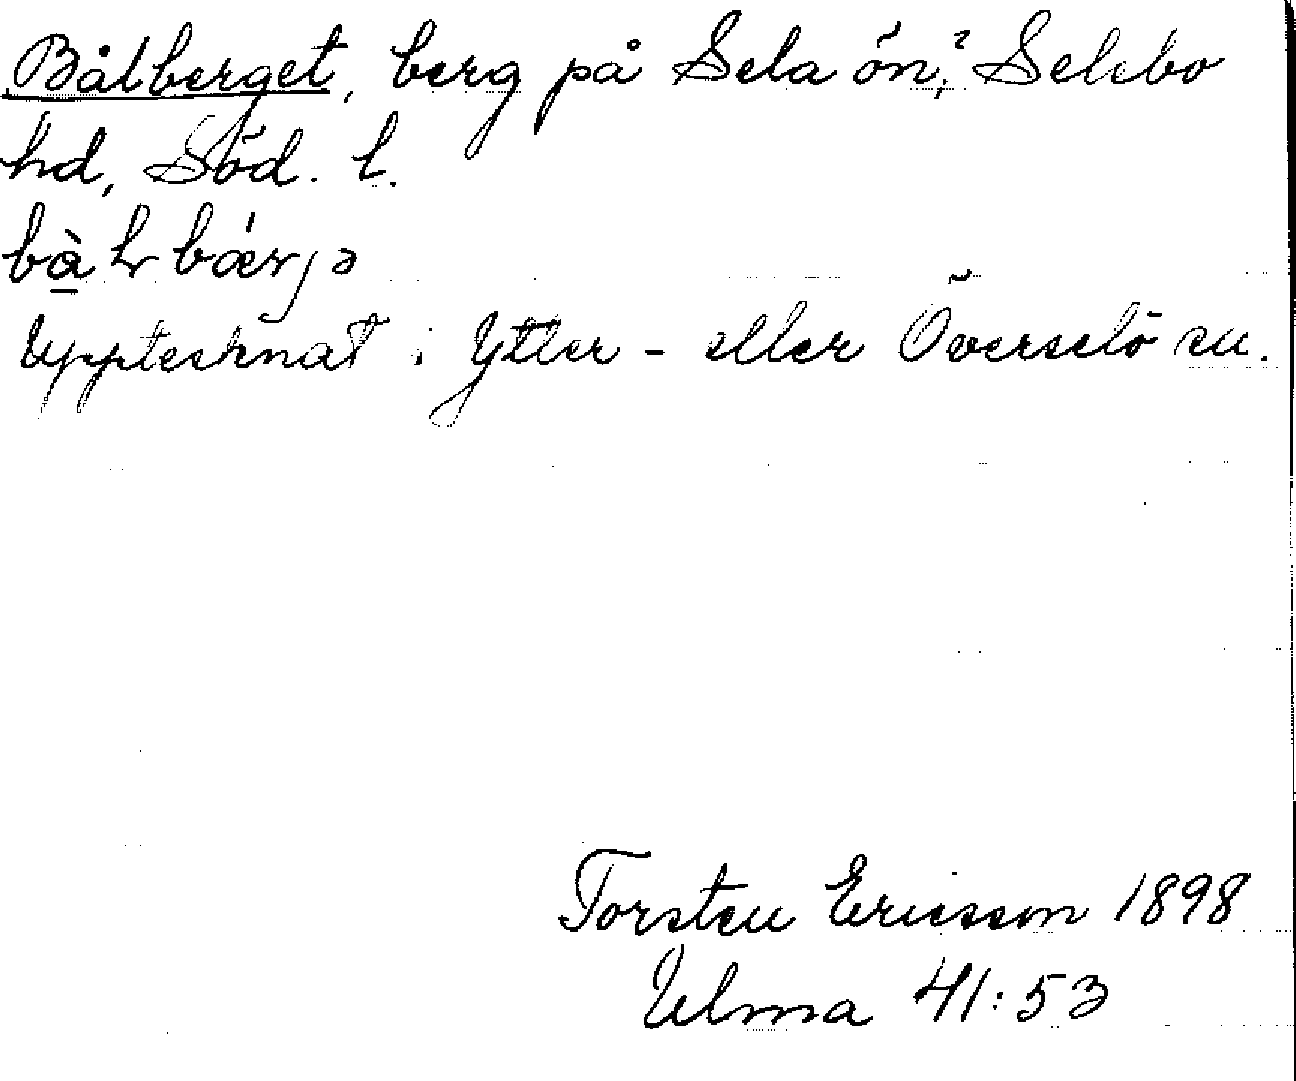 Bålberget, berg på Selaön,? Selebo
hd, Söd. l.
bà̱ɫbǽrjə
Upptecknat i Ytter- eller Överselö sn.
Torsten Ericsson 1898
Ulma 41:53